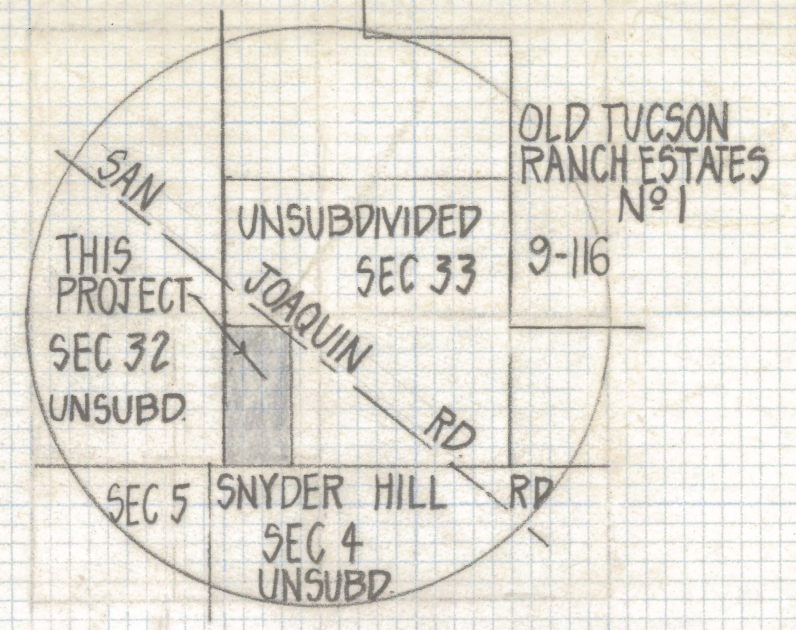 OLD TUCSON
RANCH ESTATES
Nº 1
9-116
SAN JOAQUIN RD.
UNSUBDIVIDED
SEC 33
THIS
PROJECT
SEC 32
UNSUBD.
SEC 5
SNYDER HILL RD
SEC 4
UNSUBD.